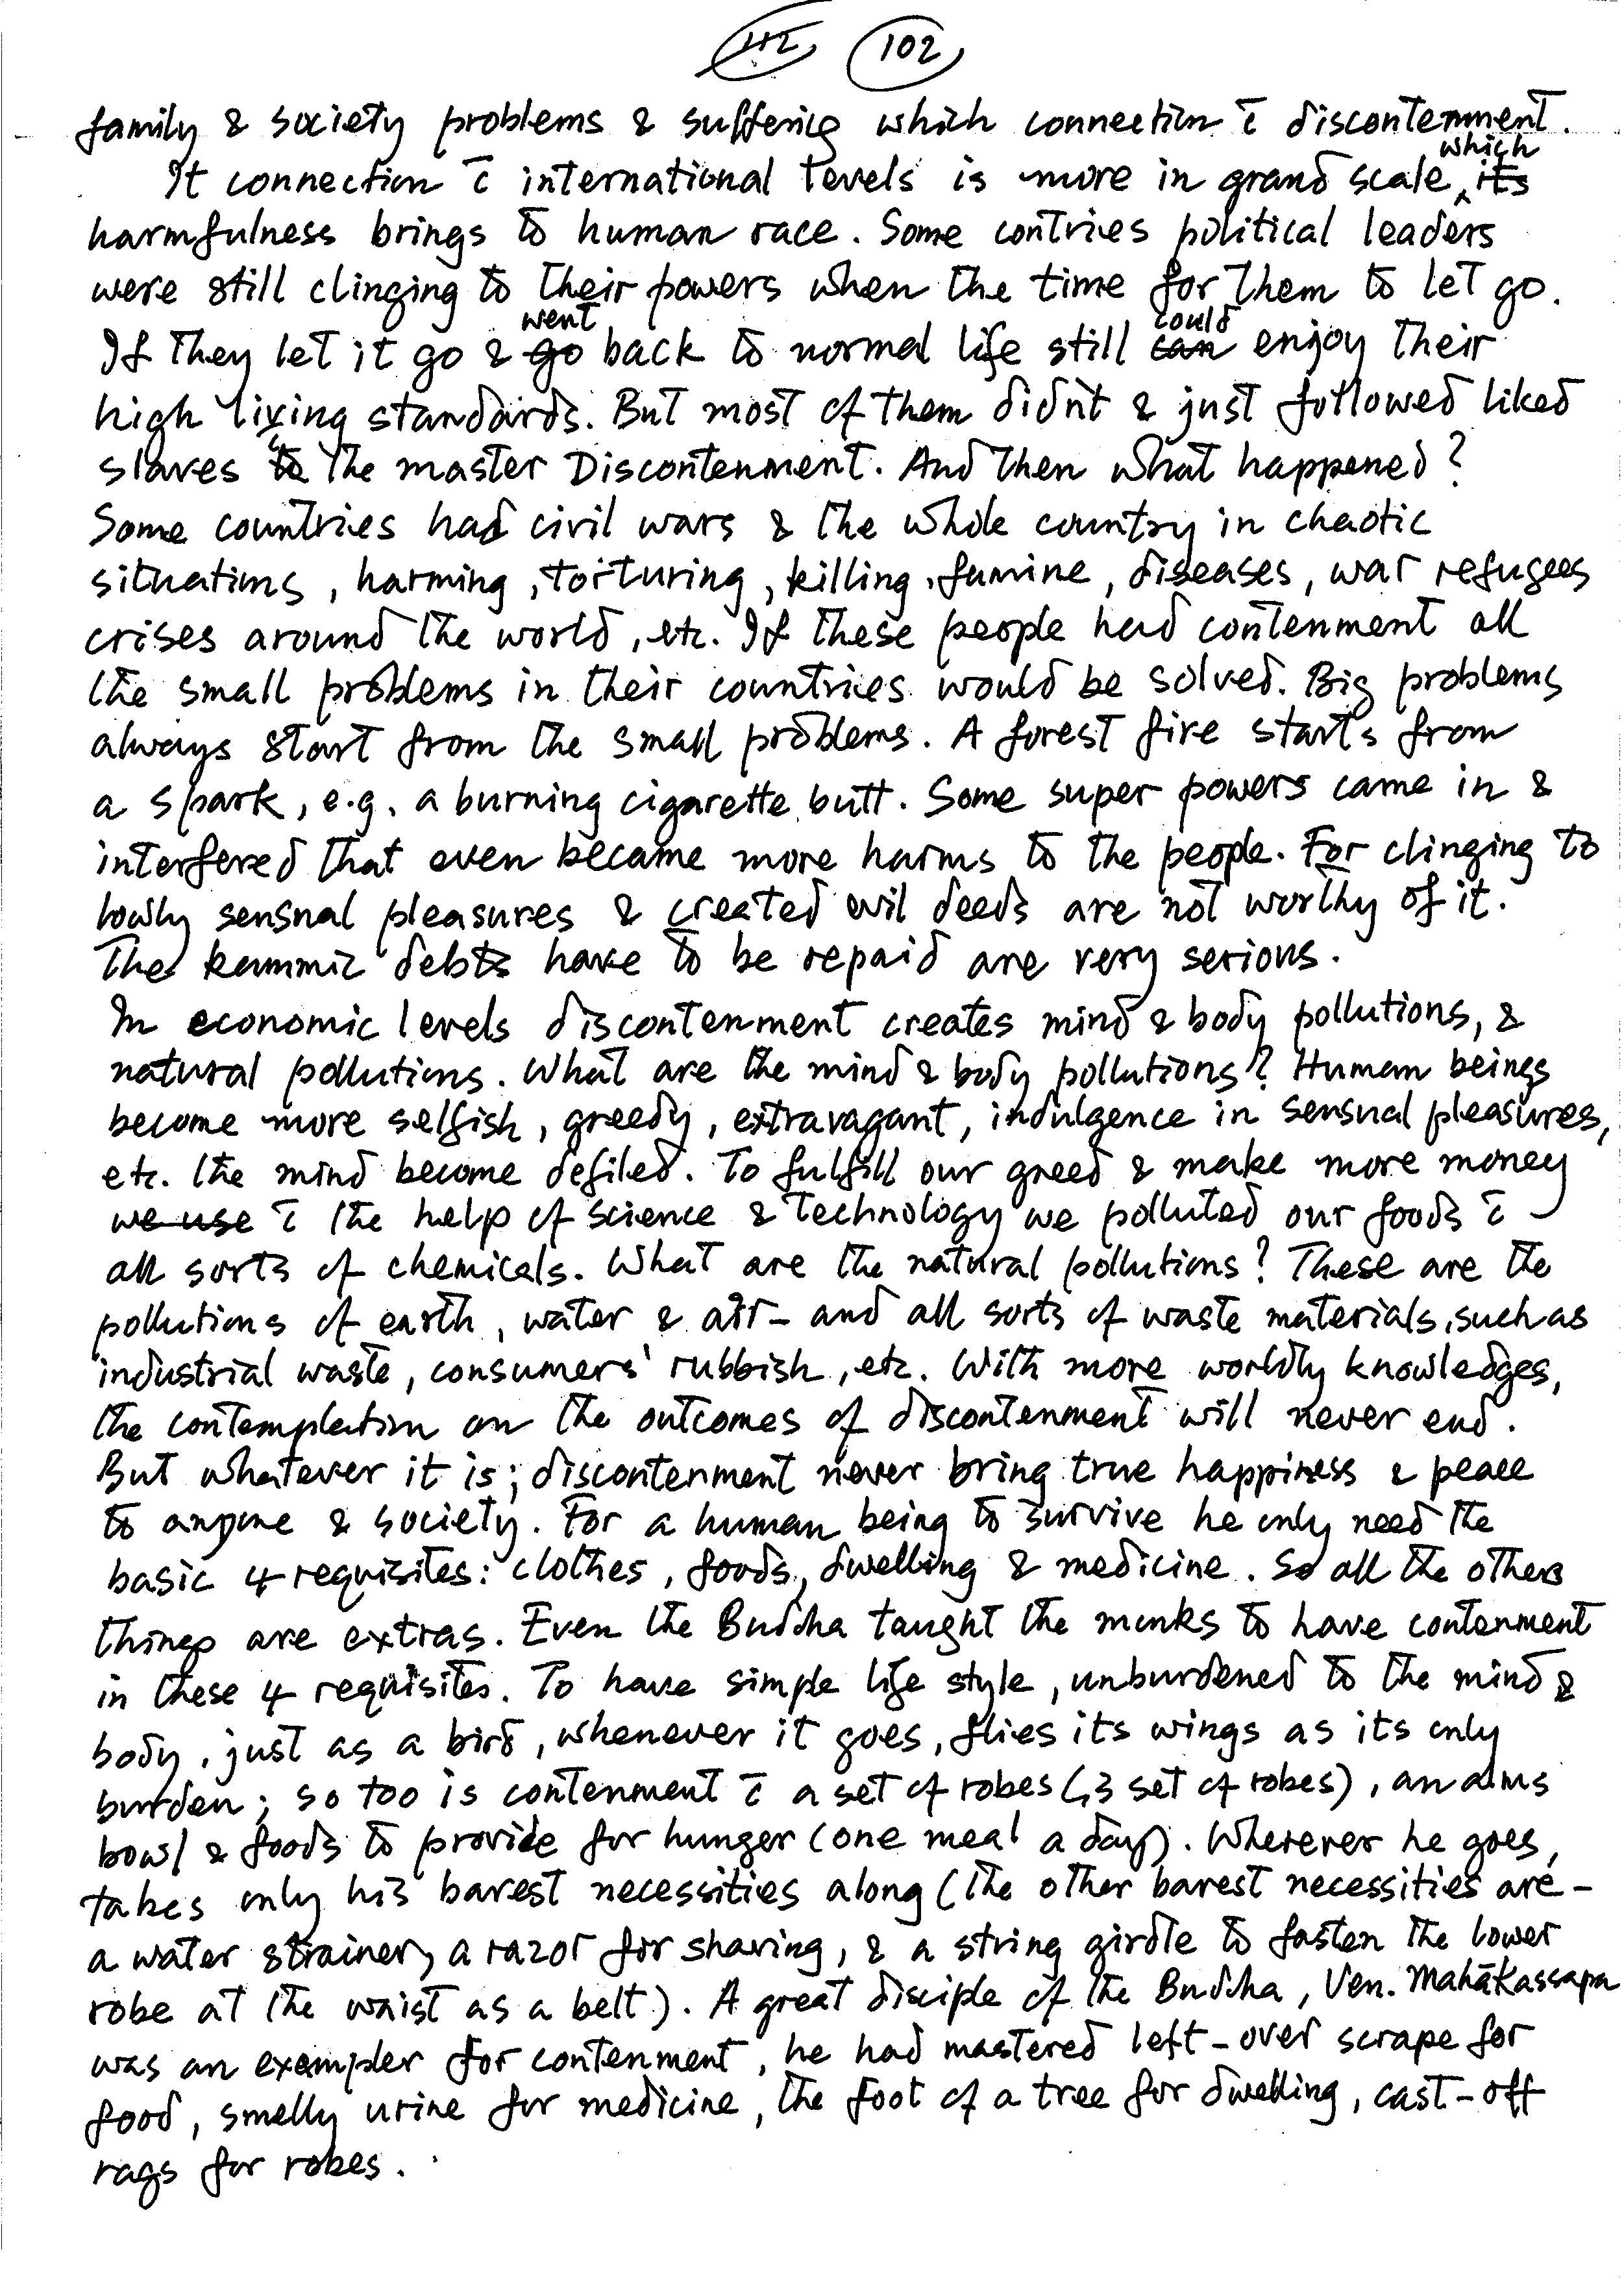 102
family & society problems & suffering which connection c̄ discontenment.
which
It connection c̄ international levels is more in grand scale, its
harmfulness brings to human race. Some contries political leaders
were still clinging to their powers when the time for them to let go.
went could
If they let it go & go back to normal life still can enjoy their
high living standards. But most of them didn't & just followed liked
slaves to the master Discontenment. And then what happened?
Some countries had civil wars & the whole country in chaotic
situations, harming, torturing, killing, famine, diseases, war refugees
crises around the world, etc. If these people had contenment all
the small problems in their countries would be solved. Big problems
always start from the small problems. A forest fire starts from
a spark, e.g. a burning cigarette butt. Some super powers came in &
interfered that even became more harms to the people. For clinging to
lowly sensual pleasures & created evil deeds are not worthy of it.
The kammic debts have to be repaid are very serious.
In economic levels discontenment creates mind & body pollutions, &
natural pollutions. What are the mind & body pollutions? Human beings
become more selfish, greedy, extravagant, indulgence in sensual pleasures,
etc. the mind become defiled. To fulfill our greed & make more money
we use c̄ the help of science & technology we polluted our foods c̄
all sorts of chemicals. What are the natural pollutions? These are the
pollutions of earth, water & air - and all sorts of waste materials, such as
industrial waste, consumers' rubbish, etc. With more worldly knowledges,
the contemplation on the outcomes of discontenment will never end.
But whatever it is; discontenment never bring true happiness & peace
to anyone & society. For a human being to survive he only need the
basic 4 requisites: clothes, foods, dwelling & medicine. So all the others
things are extras. Even the Buddha taught the monks to have contenment
in these 4 requisites. To have simple life style, unburdened to the mind &
body, just as a bird, whenever it goes, flies its wings as its only
burden; so too is contenment c̄ a set of robes (, 3 set of robes), an alms
bowl & foods to provide for hunger (one meal a day). Wherever he goes,
takes only his barest necessities along (the other barest necessities are -
a water strainer, a razor for shaving, & a string girdle to fasten the lower
robe at the waist as a belt). A great disciple of the Buddha, Ven. Mahākassapa
was an exempler for contenment, he had mastered left-over scrape for
food, smelly urine for medicine, the foot of a tree for dwelling, cast-off
rags for robes.